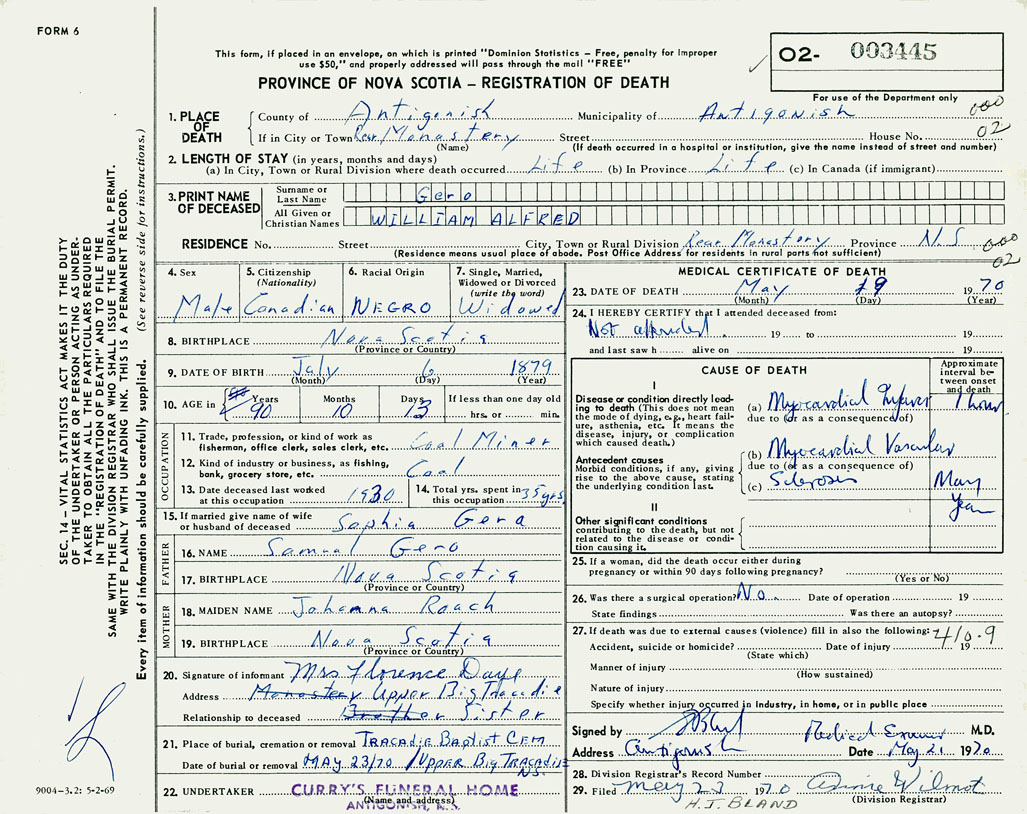 FORM 6
This form, if placed in an envelope, on which is printed "Dominion Statistics – Free, penalty for improper
use $50," and properly addressed will pass through the mail "FREE"
PROVINCE OF NOVA SCOTIA – REGISTRATION OF DEATH
02- 003445
For use of the Department only
000
02
1. PLACE OF DEATH
County of Antigonish Municipality of ANTIGONISH
If in City or Town Rear Monastery Street House No.
(Name) (If death occurred in a hospital or institution, give the name instead of street and number)
2. LENGTH OF STAY (in years, months and days)
(a) In City, Town or Rural Division where death occurred Life (b) In Province Life (c) In Canada (if immigrant)
3. PRINT NAME OF DECEASED
Surname or Last Name Gero
All Given or Christian Names WILLIAM ALFRED
RESIDENCE No. Street City, Town or Rural Division Rear Monastery Province N.S
(Residence means usual place of abode. Post Office Address for residents in rural parts not sufficient)
000
02
4. Sex
Male
5. Citizenship
(Nationality)
Canadian
6. Racial Origin
NEGRO
7. Single, Married,
Widowed or Divorced
(write the word)
Widowed
8. BIRTHPLACE Nova Scotia
(Province or Country)
9. DATE OF BIRTH July 6 1879
(Month) (Day) (Year)
10. AGE in Years Months Days If less than one day old
90 10 13 hrs. or min.
OCCUPATION
11. Trade, profession, or kind of work as
fisherman, office clerk, sales clerk, etc. Coal Miner
12. Kind of industry or business, as fishing,
bank, grocery store, etc. Coal
13. Date deceased last worked
at this occupation 1930
14. Total yrs. spent in
this occupation 35 yrs
15. If married give name of wife
or husband of deceased Sophia Gero
FATHER
16. NAME Samual Gero
17. BIRTHPLACE Nova Scotia
(Province or Country)
MOTHER
18. MAIDEN NAME Johanna Roach
19. BIRTHPLACE Nova Scotia
(Province or Country)
20. Signature of informant Mrs Florence Daye
Address Monastery Upper Big Tracadie
Relationship to deceased Brother Sister
21. Place of burial, cremation or removal TRACADIE BAPTIST CEM
Date of burial or removal MAY 23/70 / UPPER BIG TRACADIE
NS.
22. UNDERTAKER CURRY'S FUNERAL HOME
(Name and address)
ANTIGONISH, N.S.
MEDICAL CERTIFICATE OF DEATH
23. DATE OF DEATH May 19 1970
(Month) (Day) (Year)
24. I HEREBY CERTIFY that I attended deceased from:
Not attended 19 to 19
and last saw h alive on 19
CAUSE OF DEATH
Approximate
interval be-
tween onset
and death
I
Disease or condition directly lead-
ing to death (This does not mean
the mode of dying, e.g., heart fail-
ure, asthenia, etc. It means the
disease, injury, or complication
which caused death.)
(a) Myocardial Infarct 1 hour
due to (or as a consequence of)
Antecedent causes
Morbid conditions, if any, giving
rise to the above cause, stating
the underlying condition last.
(b) Myocardial Vascular
due to (or as a consequence of)
(c) Sclerosis Many
Years
II
Other significant conditions
contributing to the death, but not
related to the disease or condi-
tion causing it.
25. If a woman, did the death occur either during
pregnancy or within 90 days following pregnancy?
(Yes or No)
26. Was there a surgical operation? No Date of operation 19
State findings Was there an autopsy?
27. If death was due to external causes (violence) fill in also the following: 410.9
Accident, suicide or homicide? Date of injury 19
(State which)
Manner of injury
(How sustained)
Nature of injury
Specify whether injury occurred in industry, in home, or in public place
Signed by Medical Examiner M.D.
Address Antigonish Date May 21 1970
28. Division Registrar's Record Number
29. Filed May 23 1970 Annie Wilmot
(Division Registrar)
H.J. BLAND
SEC. 14 – VITAL STATISTICS ACT MAKES IT THE DUTY
OF THE UNDERTAKER OR PERSON ACTING AS UNDER-
TAKER TO OBTAIN ALL THE PARTICULARS REQUIRED
IN THE "REGISTRATION OF DEATH" AND TO FILE THE
SAME WITH THE DIVISION REGISTRAR WHO SHALL ISSUE THE BURIAL PERMIT.
WRITE PLAINLY WITH UNFADING INK. THIS IS A PERMANENT RECORD.
Every item of information should be carefully supplied. (See reverse side for instructions.)
9004-3.2: 5-2-69